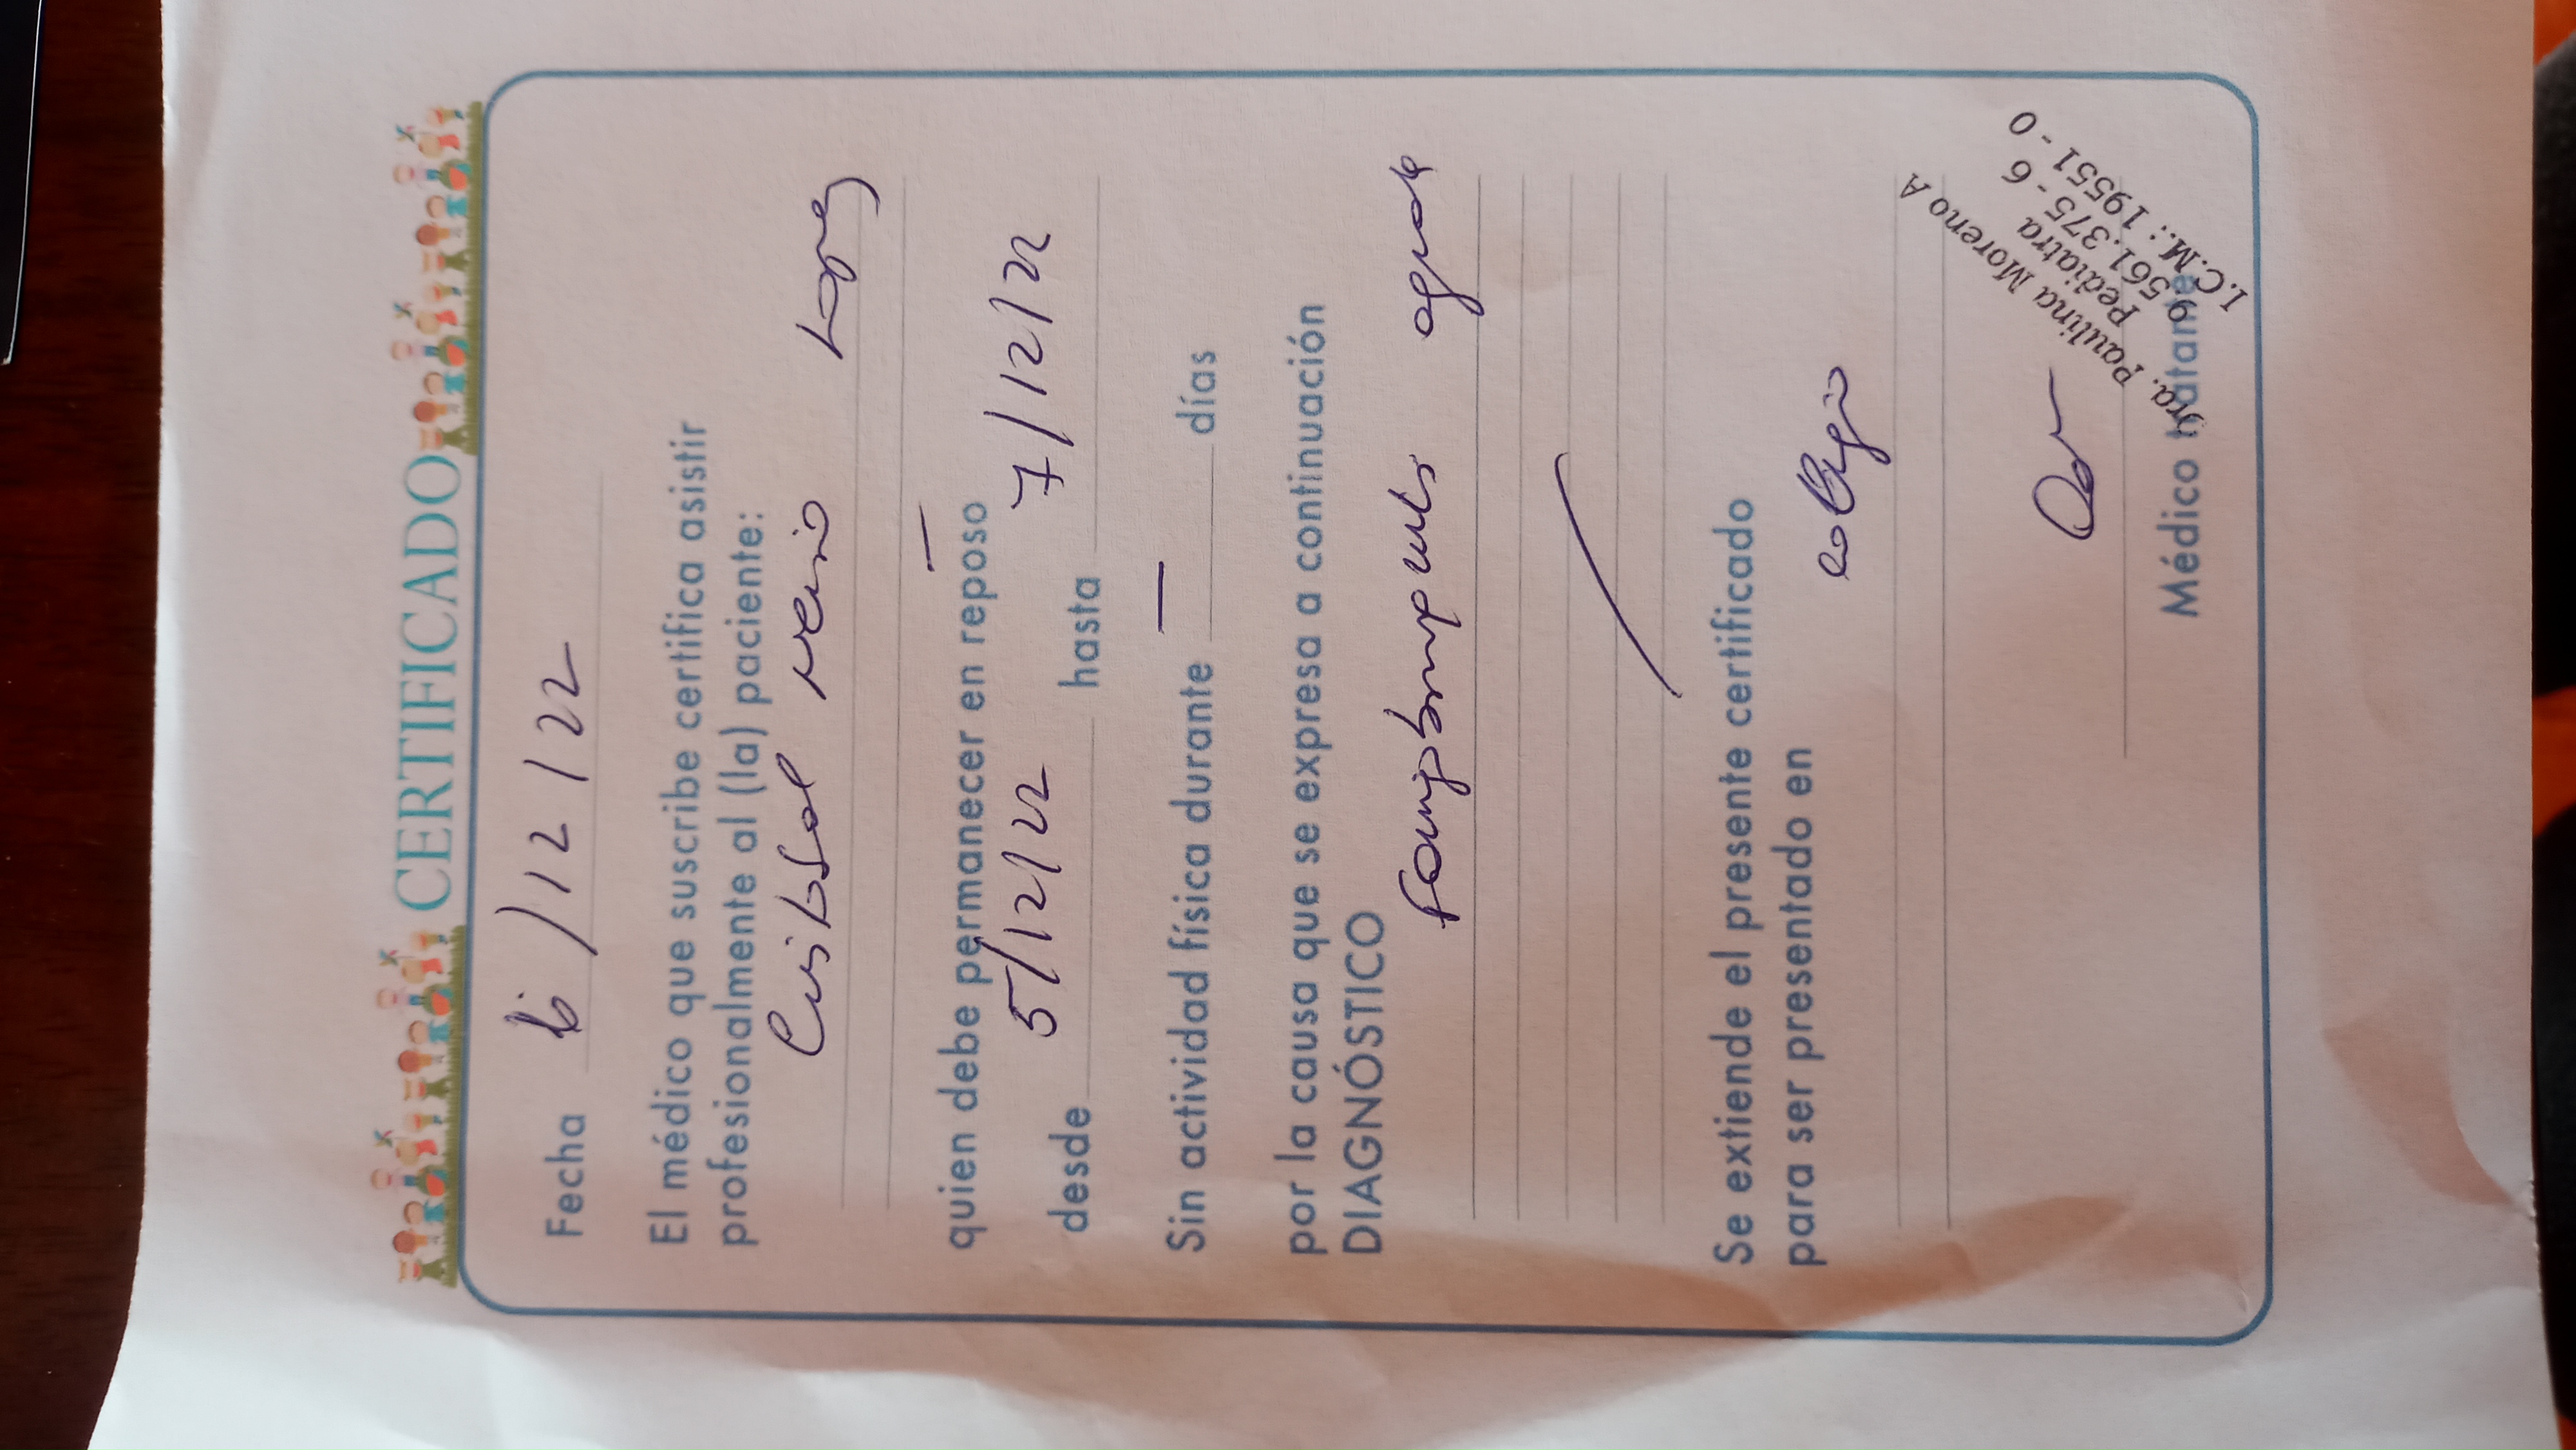 CERTIFICADO
Fecha 6/12/22
El médico que suscribe certifica asistir
profesionalmente al (la) paciente:
Cristobal Lopez
quien debe permanecer en reposo
desde 5/12/22 hasta 7/12/22
Sin actividad física durante — días
por la causa que se expresa a continuación
DIAGNÓSTICO
aguda
Se extiende el presente certificado
para ser presentado en
colegio
Médico tratante
Dra. Paulina Moreno A
Pediatra
9.561.375 - 6
I.C.M.: 19551 - 0